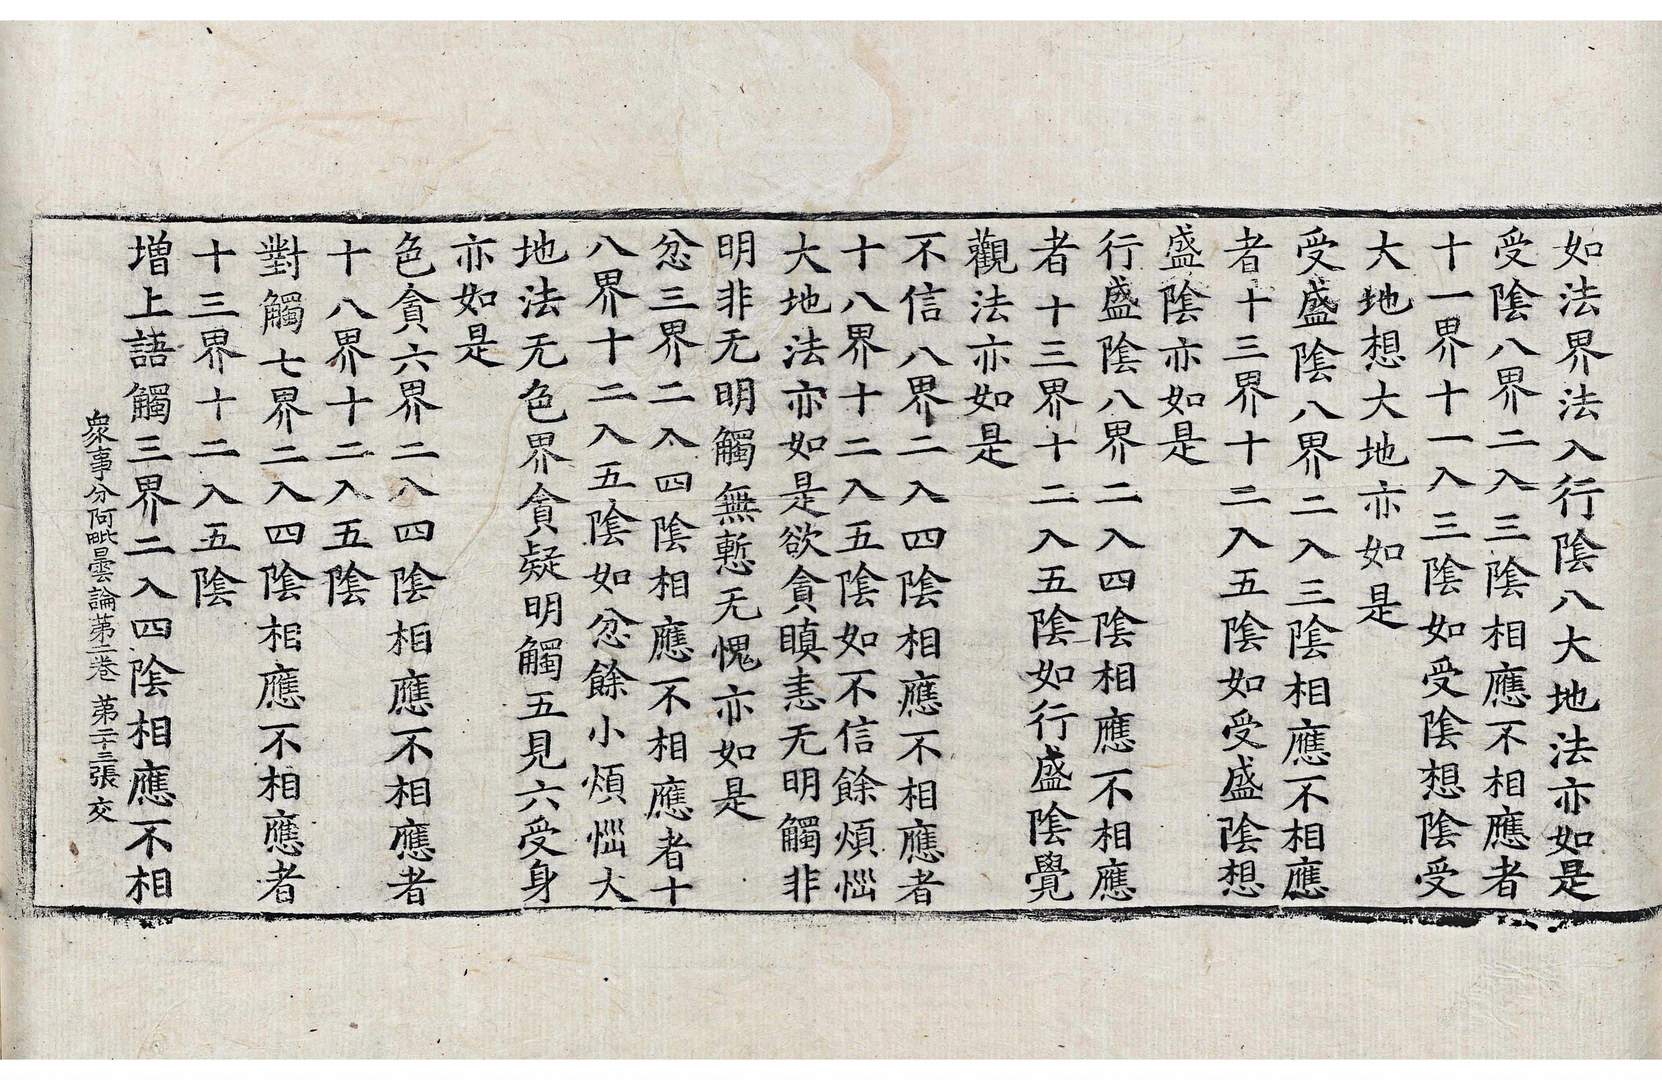 如法界法入行陰八大地法亦如是
受陰八界二入三陰相應不相應者
十一界十一入三陰如受陰想陰受
大地想大地亦如是
受盛陰八界二入三陰相應不相應
者十三界十二入五陰如受盛陰想
盛陰亦如是
行盛陰八界二入四陰相應不相應
者十三界十二入五陰如行盛陰覺
觀法亦如是
不信八界二入四陰相應不相應者
十八界十二入五陰如不信餘煩惱
大地法亦如是欲貪瞋恚无明觸非
明非无明觸無慙无愧亦如是
忿三界二入四陰相應不相應者十
八界十二入五陰如忿餘小煩惱大
地法无色界貪疑明觸五見六受身
亦如是
色貪六界二入四陰相應不相應者
十八界十二入五陰
對觸七界二入四陰相應不相應者
十三界十二入五陰
增上語觸三界二入四陰相應不相
衆事分阿毗曇論第二卷 第二十三張 交